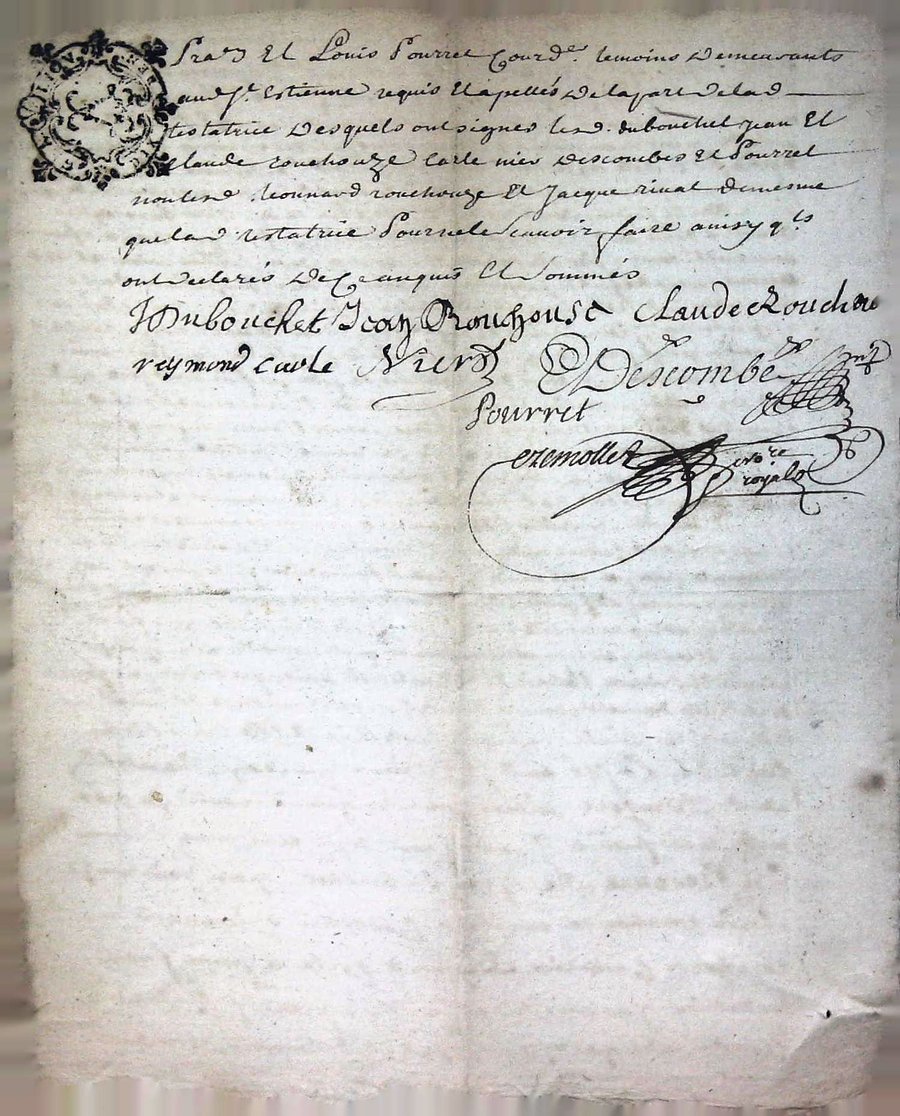 Pra.n Et Louis Pourret Courd.r temoins Demeurants
aud St Estienne requis Et apellés De la part de lad
testatrice Desquels ont signes lesd. dubouchet jean Et
claude rouchouze Carle nier Descombes Et Pourret
non lesd. leonnard rouchouze Et Jacque rivat de mesme
que lad testatrice Pour ne le scauvoir faire ainsy qls
ont declarés De Ce anquis Et sommés
JDubouchet Jean Rouchouse claude Rouchouse
reymond carle Nier
Descombe
Pourret
ezemoller nore
royal